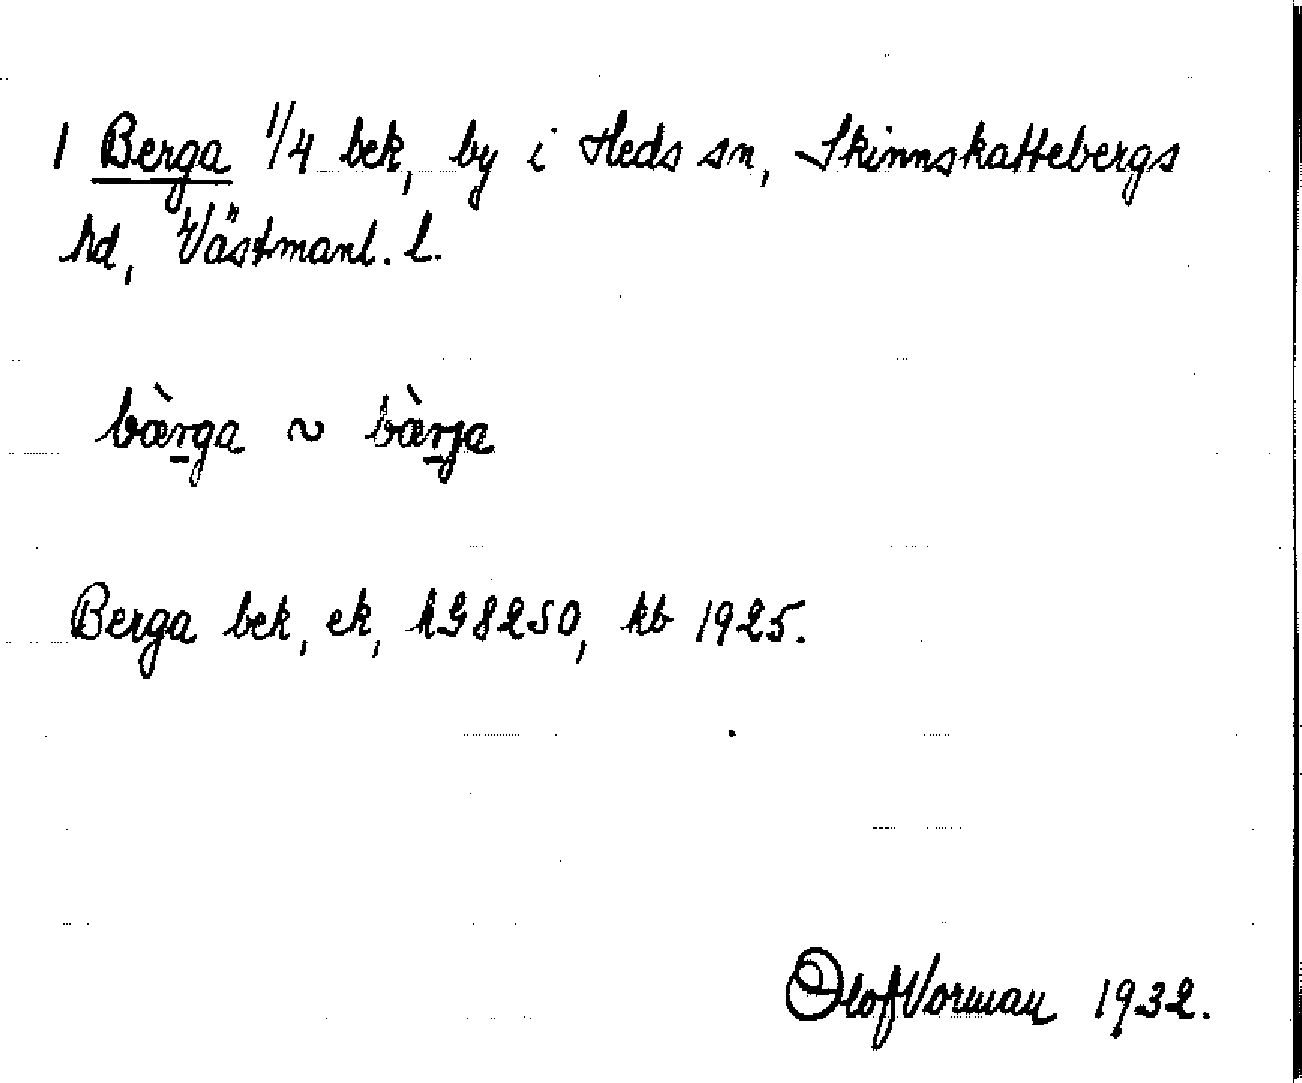 1 Berga 1/4 bek, by i Heds sn, Skinnskattebergs
hd, Västmanl. l.
bæ̀rga ~ bæ̀rja
Berga bek, ek, hG8250, kb 1925.
Olof Vorman 1932.